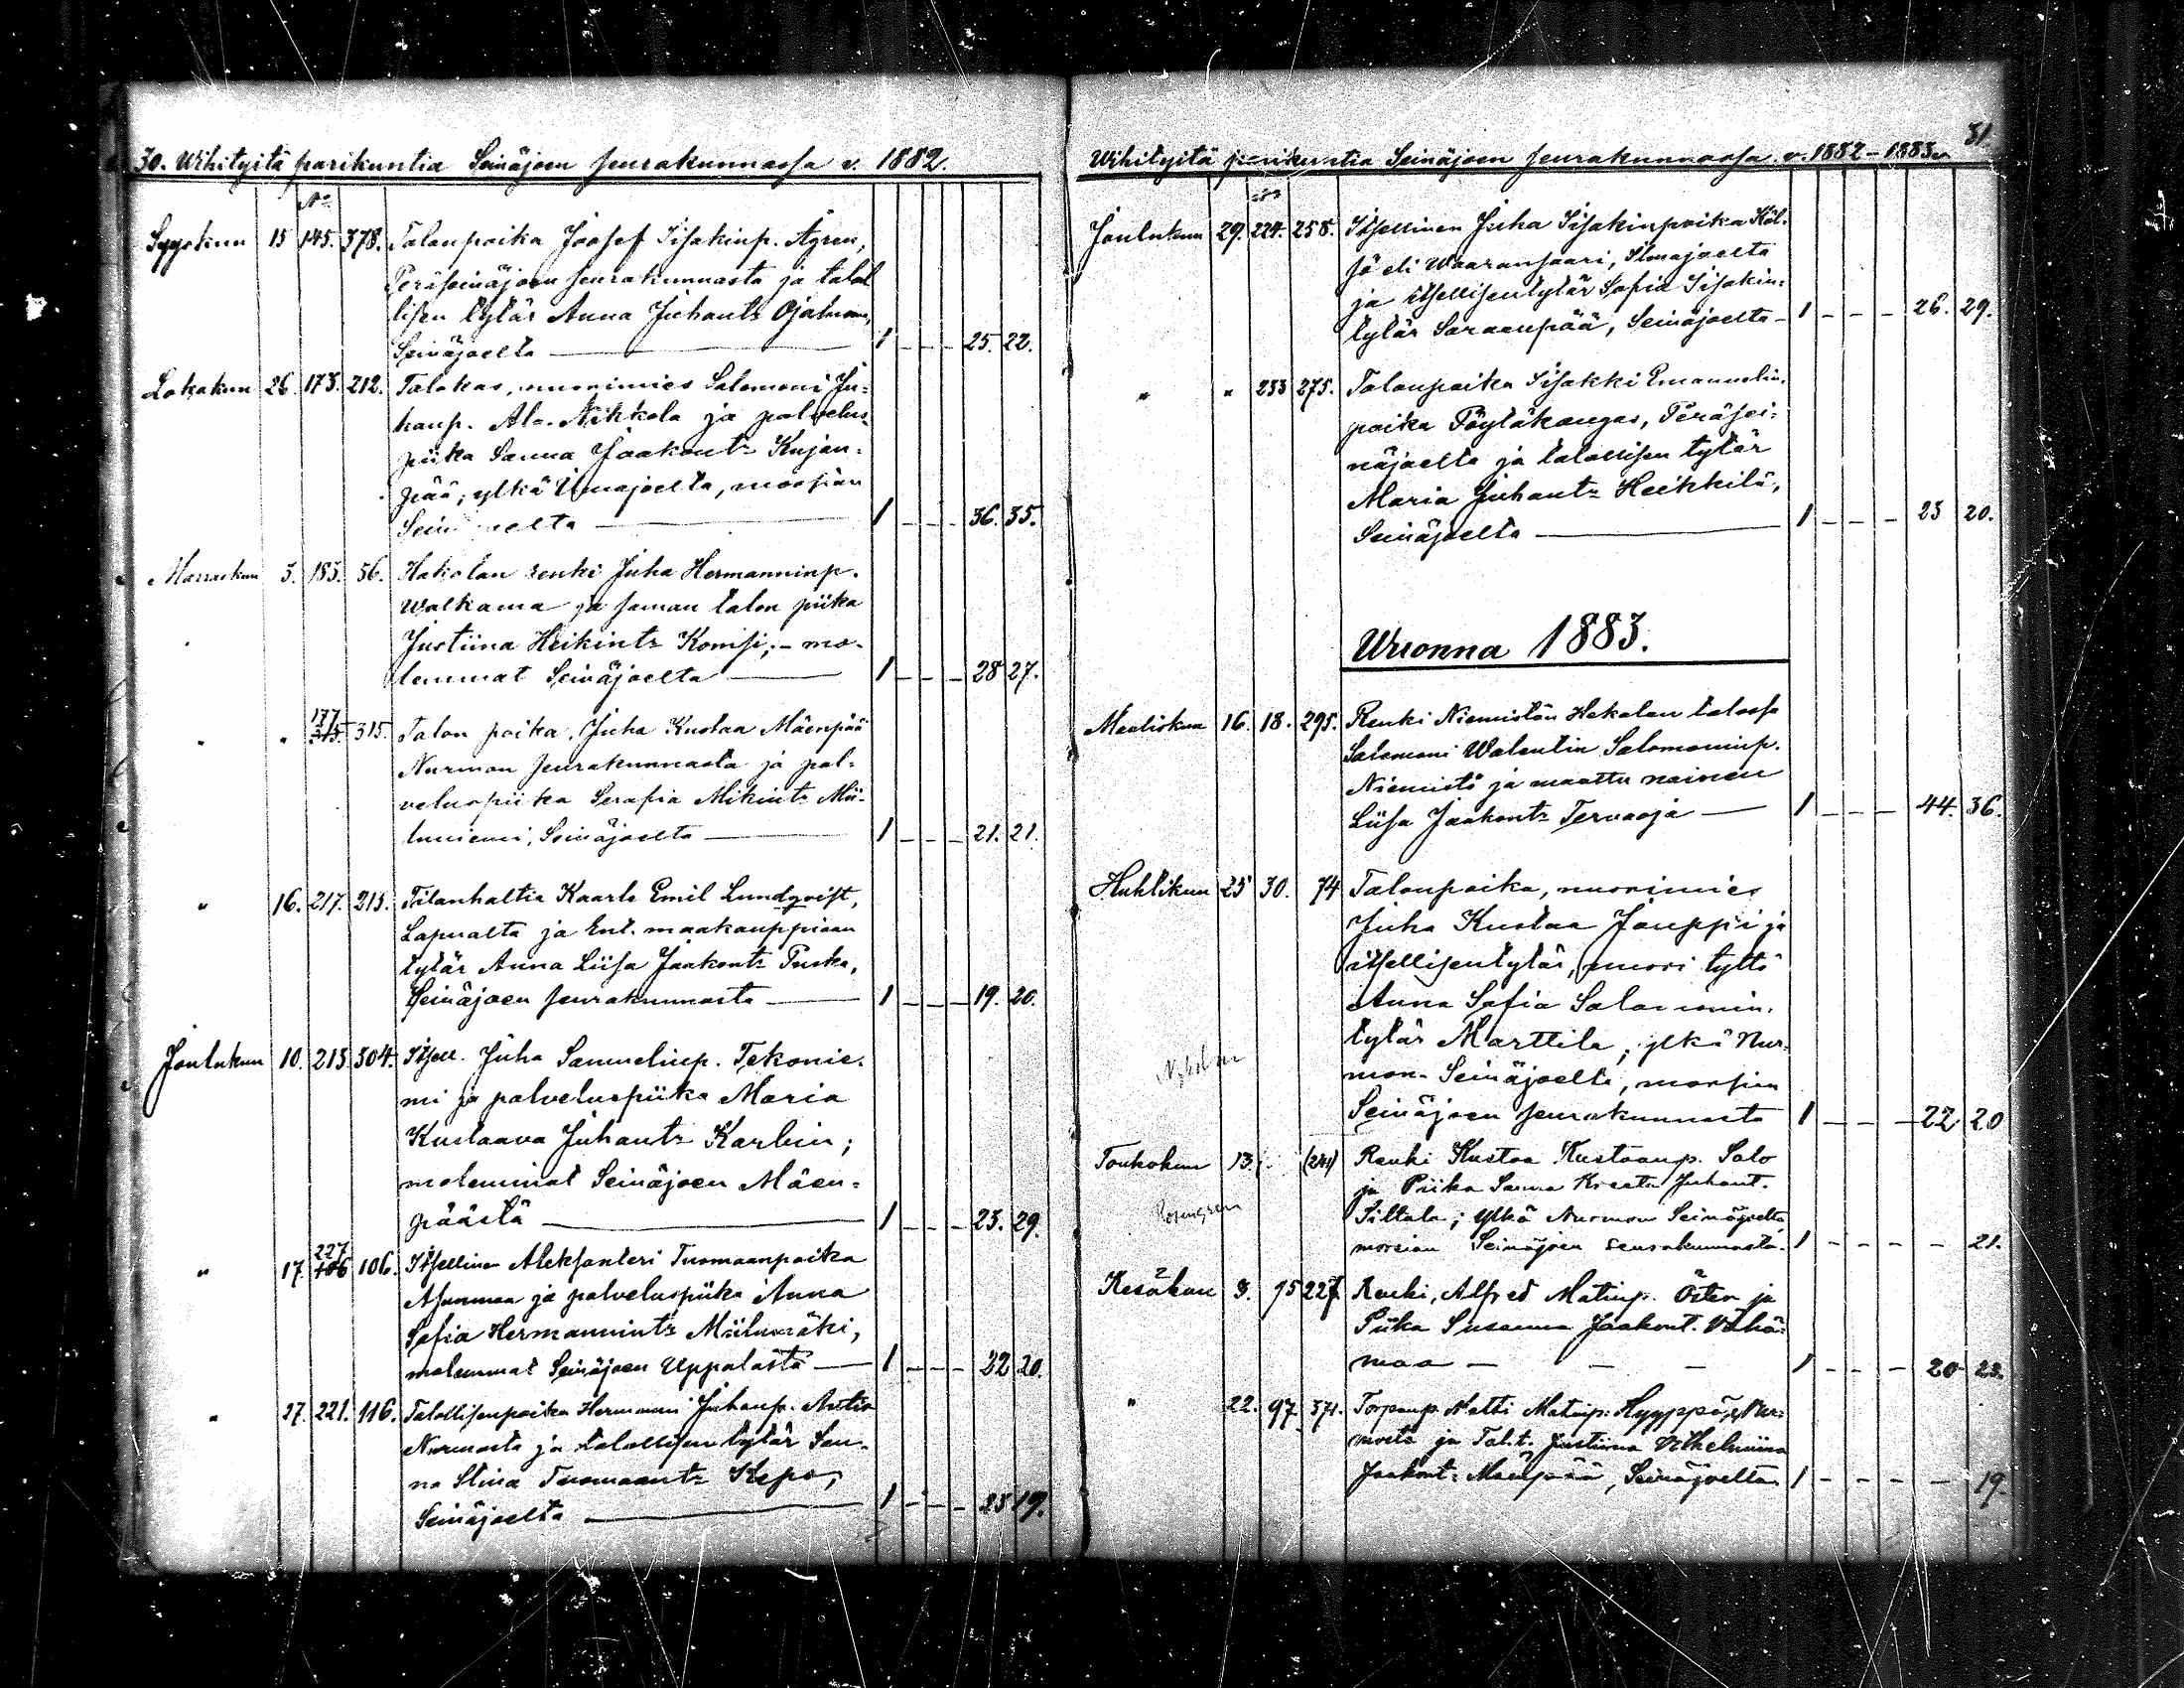 30. Wihityitä parikuntia Seinäjoen seurakunnassa v. 1882.
No
Syyskuu 15 145. 378. Talonpoika Joosef Iisakinp. Ågren,
Peräseinäjoen seurakunnasta ja talol
lisen tytär Anna Juhantr Ojaluoma,
Seinäjoelta — 1 - - - 25. 22.
Lokakuu 26. 173. 212. Talokas, nuorimies Salomoni Ju-
hanp. Ala-Nikkola ja palvelus-
piika Sanna Jaakontr Kujan-
pää; ylkä Ilmajoelta, morsian
Seinäjoelta — 1 - - - 36. 35.
Marraskuu 3. 183. 56. Hakolan renki Juha Hermanninp.
Walkama ja saman talon piika
Justiina Heikintr Komsi; - mo-
lemmat Seinäjoelta — 1 - - - 28 27.
" " 177 315. Talon poika, Juha Kustaa Mäenpää
Nurmon seurakunnasta ja pal-
veluspiika Serafia Mikintr Mii-
luniemi, Seinäjoelta — 1 - - - 21. 21.
" 16. 217. 213. Tilanhaltia Kaarlo Emil Lundqvist,
Lapualta ja Ent. maakauppiaan
tytär Anna Liisa Jaakontr Puska,
Seinäjoen seurakunnasta — 1 - - - 19. 20.
Joulukuu 10. 213. 304. Itsell. Juha Samuelinp. Tekonie-
mi ja palveluspiika Maria
Kustaava Juhantr Karhin;
molemmat Seinäjoen Mäen-
päästä — 1 - - - 23. 29.
" 17. 227 106 106. Itsellinen Aleksanteri Tuomaanpoika
Asunmaa ja palveluspiika Anna
Sofia Hermannintr Miilumäki,
molemmat Seinäjoen Uppalasta — 1 - - - 22 20.
" 27. 221. 116. Talollisenpoika Hermanni Juhanp. Antia
Nurmosta ja talollisen tytär San-
na Stina Tuomaantr Sepo,
Seinäjoelta — 1 - - - 28 19.
31.
Wihityitä parikuntia Seinäjoen seurakunnassa v. 1882-1883.
No
Joulukuu 29. 224. 258. Itsellinen Juha Iisakinpoika Köl-
sö eli Waaransaari, Ilmajoelta
ja itsellisentytär Sofia Iisakin-
tytär Saraanpää, Seinäjoelta - 1 - - - 26. 29.
" " 233 275. Talonpoika Iisakki Emanuelin-
poika Pöytäkangas, Peräsei-
näjoelta ja talollisen tytär
Maria Juhantr Heikkilä,
Seinäjoelta — 1 - - - 23 20.
Wuonna 1883.
Maaliskuu 16. 18. 295. Renki Niemistön Hakalan talossa
Salomoni Walentin Salomoninp.
Niemistö ja maattu nainen
Liisa Jaakontr Tervaoja — 1 - - - 44. 36.
Huhtikuu 25 30. 74 Talonpoika, nuorimies
Juha Kustaa Jouppi ja
itsellisentytär, nuori tyttö
Anna Sofia Salomonin-
tytär Marttila; ylkä Nur-
mon- Seinäjoelta, morsian
Seinäjoen seurakunnasta 1 - - - 22 20
Toukokuu 13. (241) Renki Kustaa Kustaanp. Salo
ja Piika Sanna Kreeta Juhant.
Siltala; Ylkä Nurmon Seinäjoelta
morsian Seinäjoen seurakunnasta. 1 - - - - 21.
Kesäkuu 2 3. 75 227 Renki, Alfred Matinp. Öster ja
Piika Susanna Jaakont. Vähä-
maa — — — 1 - - - 20 22.
" 22. 97. 371. Torpanp. Matti Matinp. Hyyppä, Nur-
mosta ja Tal.t. Justiina Vilhelmiina
Jaakont. Mäenpää, Seinäjoelta 1 - - - - 19.